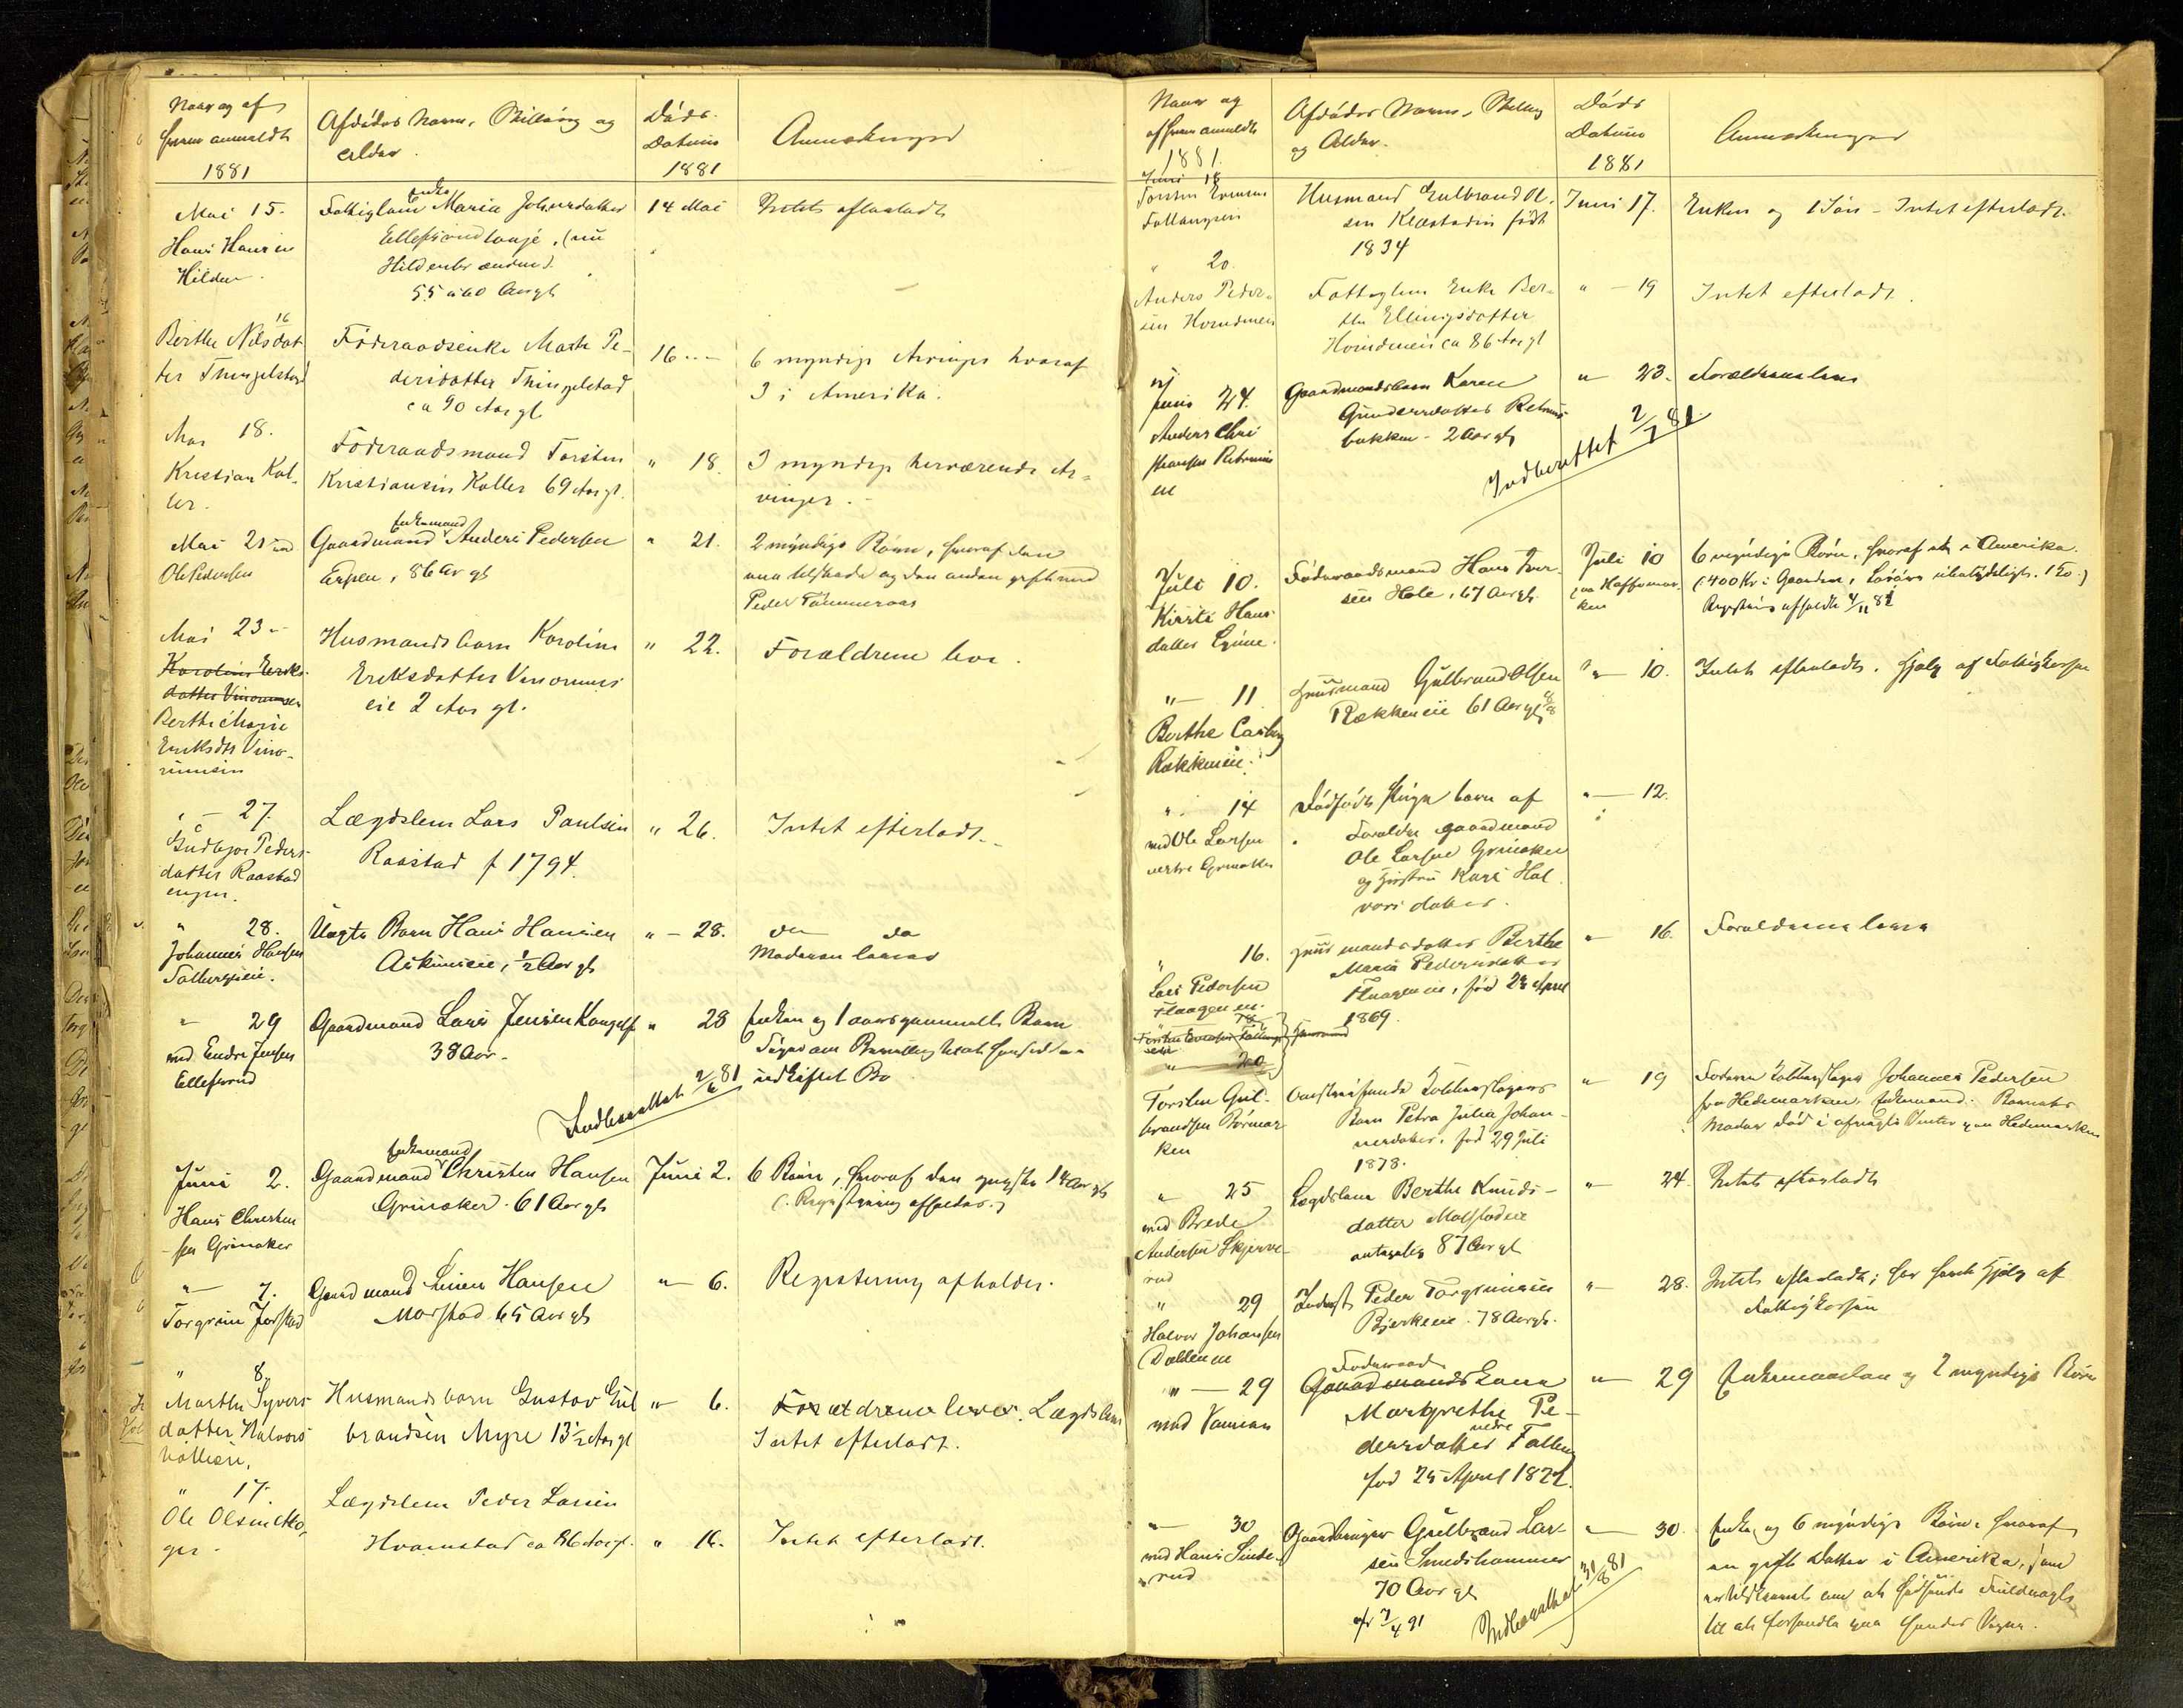 Naar og af
hvem anmeldt
1881
Afdødes Navn, Stilling og
Alder.
Døds-
Datum
1881
Anmerkninger
Mai 15.
Hans Hansen
Hilden.
Fattiglem Enke Maria Johnsdatter
Ellefsrudhauje, (nu
Hildenbrænden).
55 a 60 Aar gl
14 Mai
Intet efterladt
16
Berthe Nilsdat-
ter Thingelstad
Föderaadsenke Marte Pe-
dersdatter Thingelstad
ca 90 Aar gl
16 –
6 myndige Arvinger hvoraf
3 i Amerika.
Mai 18.
Kristian Kol-
ler.
Föderaadsmand Torsten
Kristiansen Koller 69 Aar gl.
" 18.
3 myndige herværende Ar-
vinger.
Mai 21 ved
Ole Pedersen
Gaardmand Enkemand Anders Pedersen
Erpen, 86 Aar gl
" 21.
2 myndige Børn, hvoraf den
ene tilstede og den anden gift med
Peder Tømmeraas
Mai 23
Karoline Eriks-
datter Vinorumsei
Berthe Marie
Eriksdtr Vino-
rumsein
Husmandsbarn Karoline
Eriksdatter Vinorums
eie 2 Aar gl.
" 22.
Forældrene leve.
" – 27.
Gudbjør Peders-
datter Raastad
engen.
Lægdslem Lars Paulsen
Raastad f 1794.
" 26.
Intet efterladt.
" 28.
Johannes Hansen
Fallangseie.
Uægte Barn Hans Hansen
Askimseie, 1/2 Aar gl
" – 28.
do do
Moderen lever
" 29
ved Endre Jensen
Ellefsrud
Gaardmand Lars Jensen
38 Aar.
" 28
Enken og 1 aars gammelt Barn
uskiftet Bo
Indberettet 2/6 81
Juni 2.
Hans Christen
sen Grinaker
Gaardmand Enkemand Christen Hansen
Grinaker. 61 Aar gl
Juni 2.
6 Børn, hvoraf den yngste 14 Aar gl
(Registrering afholdes.)
" 7.
Torgrim Jorstad
Gaardmand Iver Hansen
Morstad 65 Aar gl
" 6.
Registering afholdes.
" 8.
Marthe Syvers
datter Halvors
bölleie.
Husmandsbarn Gustav Gul
brandsen Myre 13 1/2 Aar gl
" 6.
Forældrene lever. Lægdslem
Intet efterladt.
" 17.
Ole Olsen Mo-
ger
Lægdslem Peder Larsen
Hvamstad ca 86 Aar gl.
" 16.
Intet efterladt.
Naar og
af hvem anmeldt
1881.
Afdødes Navn, Stilling
og Alder.
Døds
Datum
1881
Anmerkninger
Juni 18
Torsten Evensen
Fallangseie
Husmand Gulbrand Ol-
sen Klæstadeie født
1834
Juni 17.
Enken og 1 Søn – Intet efterladt.
" 20.
Anders Peder-
sen Horndneie
Fattiglem Enke Ber-
the Ellingsdatter
Horndneie ca 86 Aar gl
" – 19
Intet efterladt.
Juni 24.
Anders Chri
stiansen
Gaardmandsbarn Karen
Gundersdatter
bakken – 2 Aar gl
" 23.
Forældrene leve
Indberettet 2/7 81.
Juli 10.
Kirsti Hans-
datter
Føderaadsmand Hans Iver-
sen Hole, 67 Aar gl.
Juli 10
6 myndige Børn, hvoraf et i Amerika.
Registering afholdt 4/11 81
" – 11
Berthe
Rækkeneie.
Husmand Gulbrand Olsen
Rækkeneie 61 Aar gl
" – 10.
Intet efterladt. Hjælp af Fattigkassen
" 14
ved Ole Larsen
Grinaker
Dødfødt Pigebarn af
Foreldre Gaardmand
Ole Larsen Grinaker
og Hustru Kari Hal
vorsdatter.
" – 12.
" 16.
Lars Pedersen
Haageneie.
Husmandsdatter Berthe
Maria Pedersdatter
Haageneie, fød 28 April
1869.
" 16.
Forældrene leve
" 20
Torsten Gul-
brandsen Børmar-
ken
Omstreifende Kobberslagers
Barn Petra Julia Johan-
nesdatter. fød 29 Juli
1878.
" 19
Faderen Kobberslager Johannes Pedersen
fra Hedemarken. Enkemand. Barnets
Moder død i afvigte Vinter paa Hedemarken
" 25
ved Brede
Andersen Skjerve-
rud
Lægdslem Berthe Knuds-
datter Molstadeie
antagelig 87 Aar gl
" 24.
Intet efterladt
" 29
Halvor Johansen
Dæhleneie
Inderst Peder Torgrimsen
Bjerkeeie. 78 Aar gl.
" 28.
Intet efterladt; har havt Hjælp af
Fattigkassen
" – 29
Føderaads
Gaardmands Kone
Margrethe Pe-
dersdatter nedre Falang
fød 25 April 1822.
" 29
Enkemanden og 2 myndige Børn
" 30
ved Hans Sinde-
rud
Gaardbruger Gulbrand Lar-
sen Smedshammer
70 Aar gl
" 30.
Enke og 6 myndige Børn. hvoraf
en gift Datter i Amerika, som
er tilskrevet om at hidsende Fuldmagt
til at forhandle paa hendes Vegne.
Indberettet 31/8 81